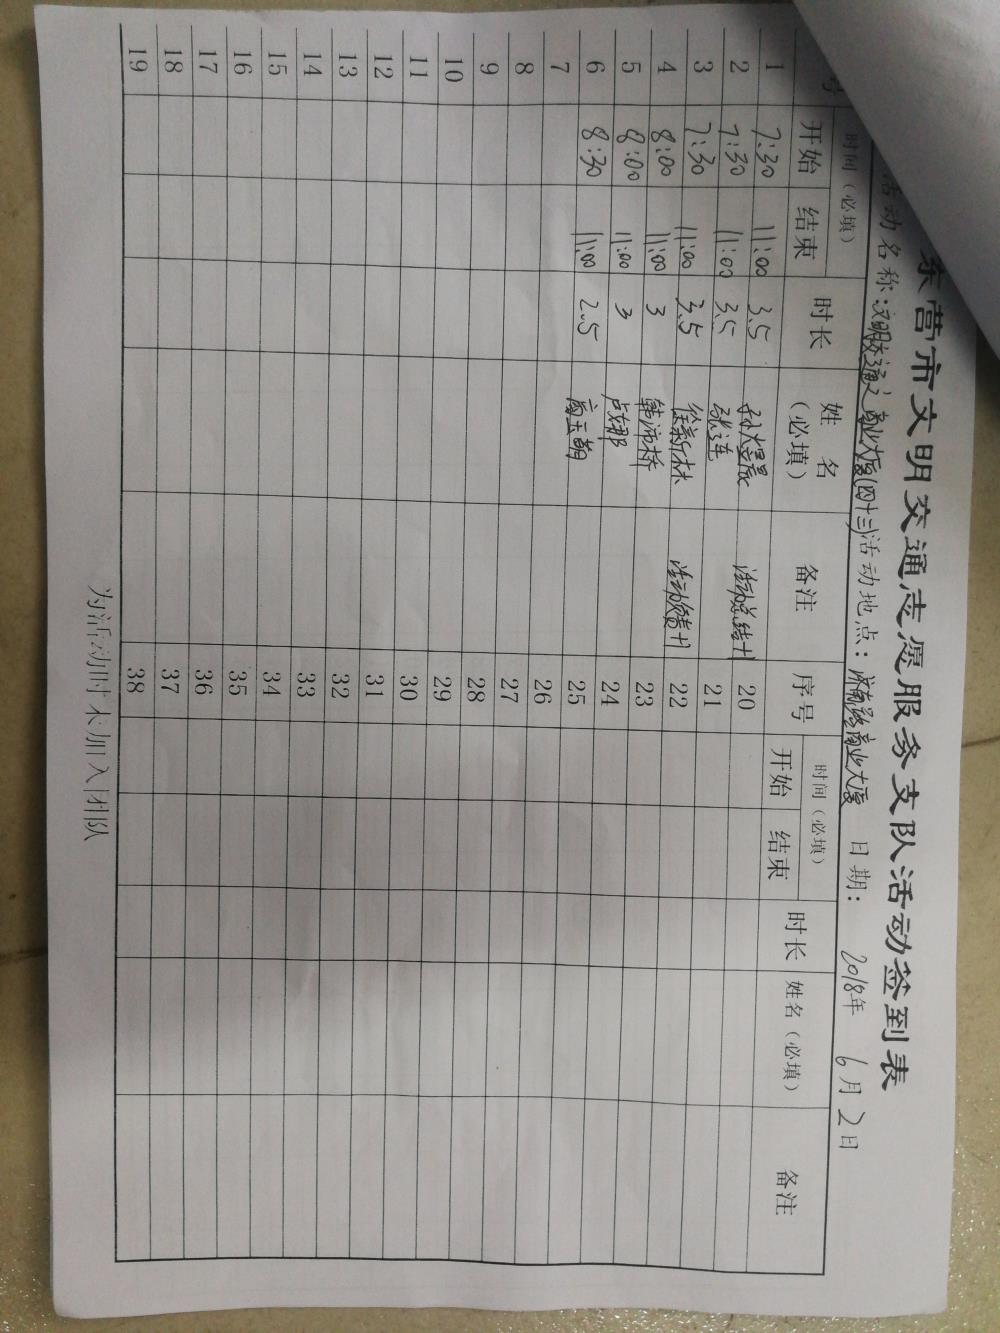 东营市文明交通志愿服务支队活动签到表
活动名称:文明交通之商业大厦(四十三)活动地点:济南路商业大厦 日期: 2018年 6月2日
号 时间(必填) 时长 姓名(必填) 备注 序号 时间(必填) 时长 姓名(必填) 备注
开始 结束 开始 结束
1 7:30 11:00 3.5 活动总结+1 20
2 7:30 11:00 3.5 张连 21
3 7:30 11:00 3.5 徐新林 22
4 8:00 11:00 3 韩沛桥 23
5 8:00 11:00 3 卢娜 24
6 8:30 11:00 2.5 商玉朝 25
7 26
8 27
9 28
10 29
11 30
12 31
13 32
14 33
15 34
16 35
17 36
18 37
19 38
为活动时未加入团队